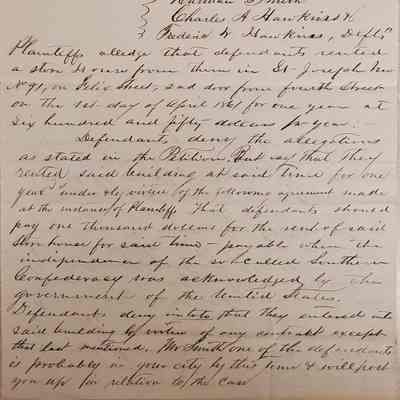 Norman Smith
Charles A Hawkins &
Frederic W Hawkins, Defts
Plaintiffs alledge that defendants rented
a store House from them in St Joseph Mo
No 91, on Felix Street, 2nd door from fourth Street
on the 1st day of April 1861 for one year at
Six hundred and fifty dollars pr year. —
Defendants deny the allegations
as stated in the Petition. But say that they
rented said building at said time for one
year under & by virtue of the following agreement made
at the instance of Plaintiffs. That defendants should
pay one thousand dollars for the rent of said
Store house for said time — payable when the
independence of the so-called Southern
Confederacy was acknowledged by the
government of the United States.
Defendants deny in toto that they entered into
said building by virtue of any contract except
that last mentioned. Mr Smith one of the defendants
is probably in your city by this time & will post
you up in relation to the case